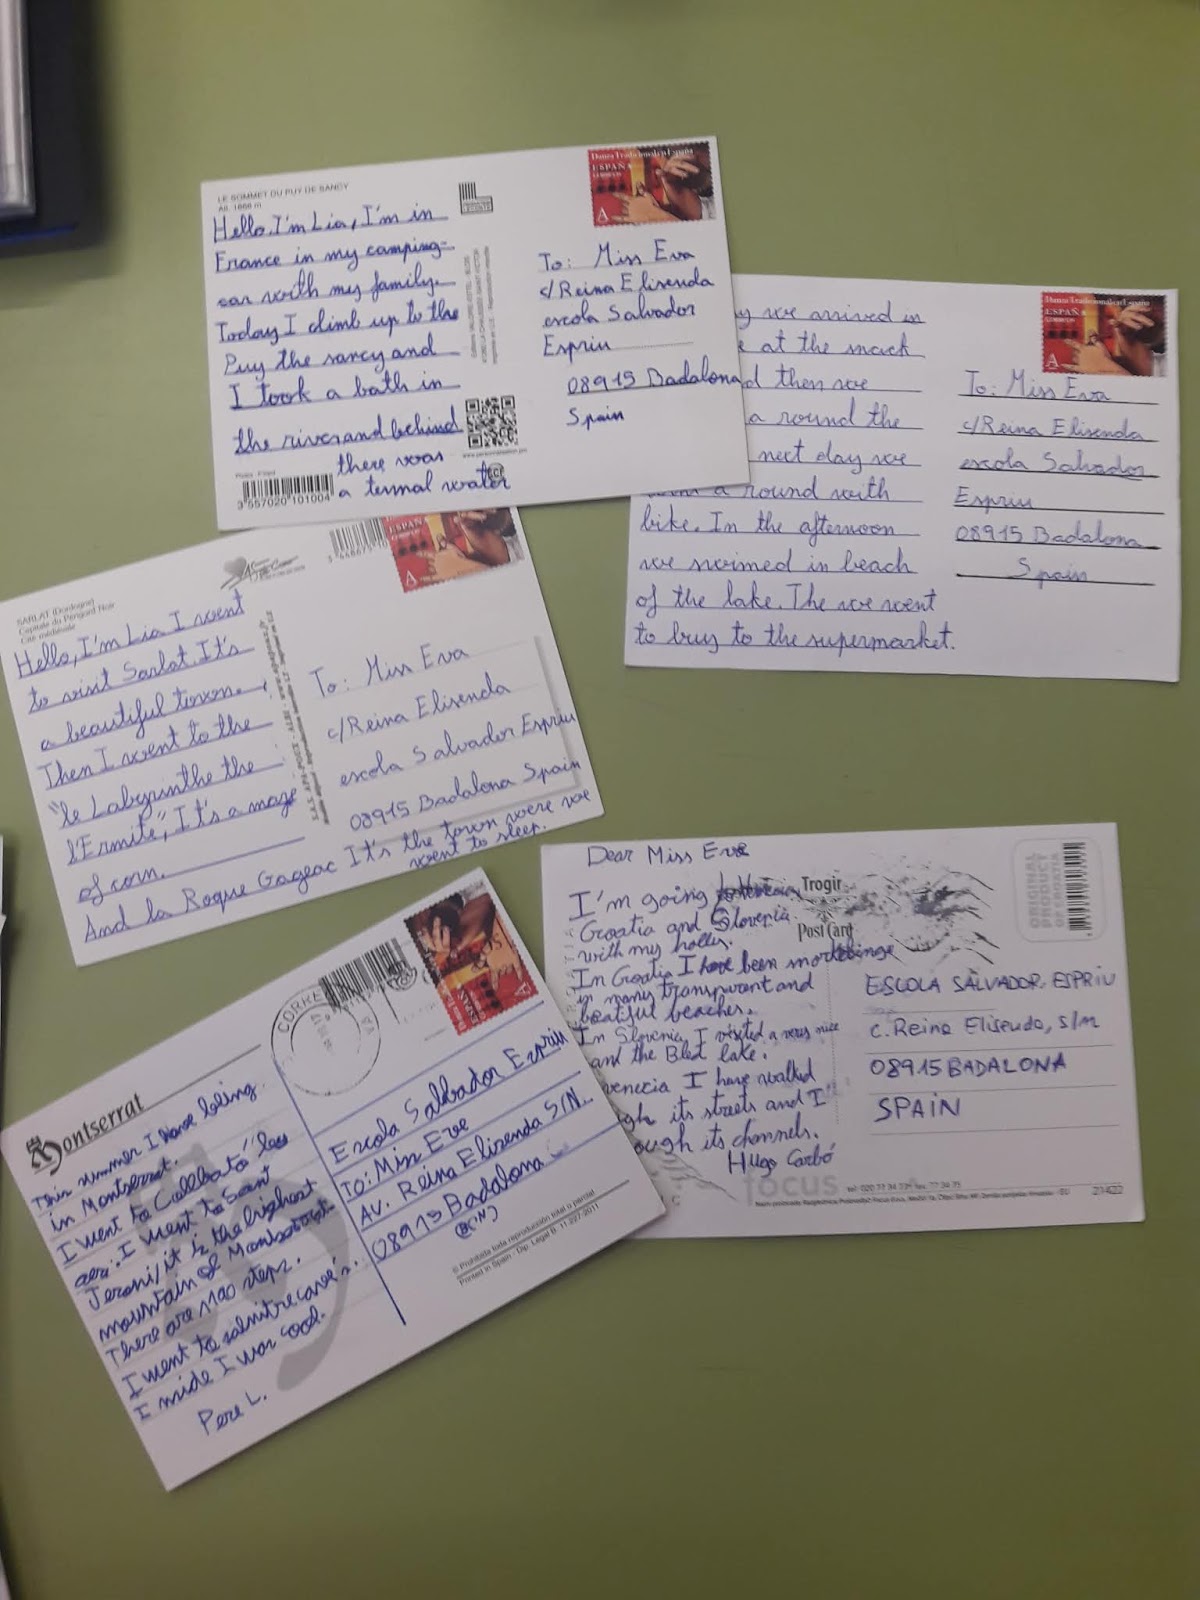 LE SOMMET DU PUY DE SANCY
Alt. 1886 m
Hello, I'm Lia, I'm in
France in my camping-
car with my family.
Today I climb up to the
Puy the sancy and
I took a bath in
the river and behind
there was
a termal water
3 557020 101004
Danza Tradicional en España
ESPAÑA
A
To: Miss Eva
c/Reina Elisenda
escola Salvador
Espriu
08915 Badalona
Spain
y we arrived in
e at the snack
d then we
a round the
next day we
a round with
bike. In the afternoon
we swimed in beach
of the lake. The we went
to buy to the supermarket.
Danza Tradicional en España
ESPAÑA
A
To: Miss Eva
c/Reina Elisenda
escola Salvador
Espriu
08915 Badalona
Spain
SARLAT (Dordogne)
Capitale du Périgord Noir
Cité médiévale
Hello, I'm Lia. I went
to visit Sarlat. It's
a beautiful town.
Then I went to the
"le Labyrinthe the
l'Ermite", It's a maze
of corn.
And la Roque Gageac It's the town were we
went to sleep.
ESPAÑA
A
To: Miss Eva
c/Reina Elisenda
escola Salvador Espriu
08915 Badalona Spain
Dear Miss Eve
I'm going
Croatia and Slovenia
with my
In Croatia I have been
in many transparant and
beatiful beaches.
In Slovenia, I visited a very nice
and the Bled lake.
venecia I have walked
gh its streets and I
ough its channels.
Hugo Carbó
Trogir
Post Card
ORIGINAL
PRODUCT
OF CROATIA
ESCOLA SALVADOR ESPRIU
C. Reina Elisenda, S/N
08915 BADALONA
SPAIN
focus
21422
Montserrat
This summer I have being
in Montserrat.
I went to Collbató
I went to Sant
Jeroni, it is the highest
mountain of Montserrat.
There are
I went to salnitre cave's.
I inside I was cool.
Pere L.
CORRE
ESPAÑA
A
Escola Salbador Espriu
TO: Miss Eve
AV. Reina Elisenda S/N
08915 Badalona
(BCN)
© Prohibida toda reproducción total o parcial
Printed in Spain - Dip. Legal B. 11.227-2011